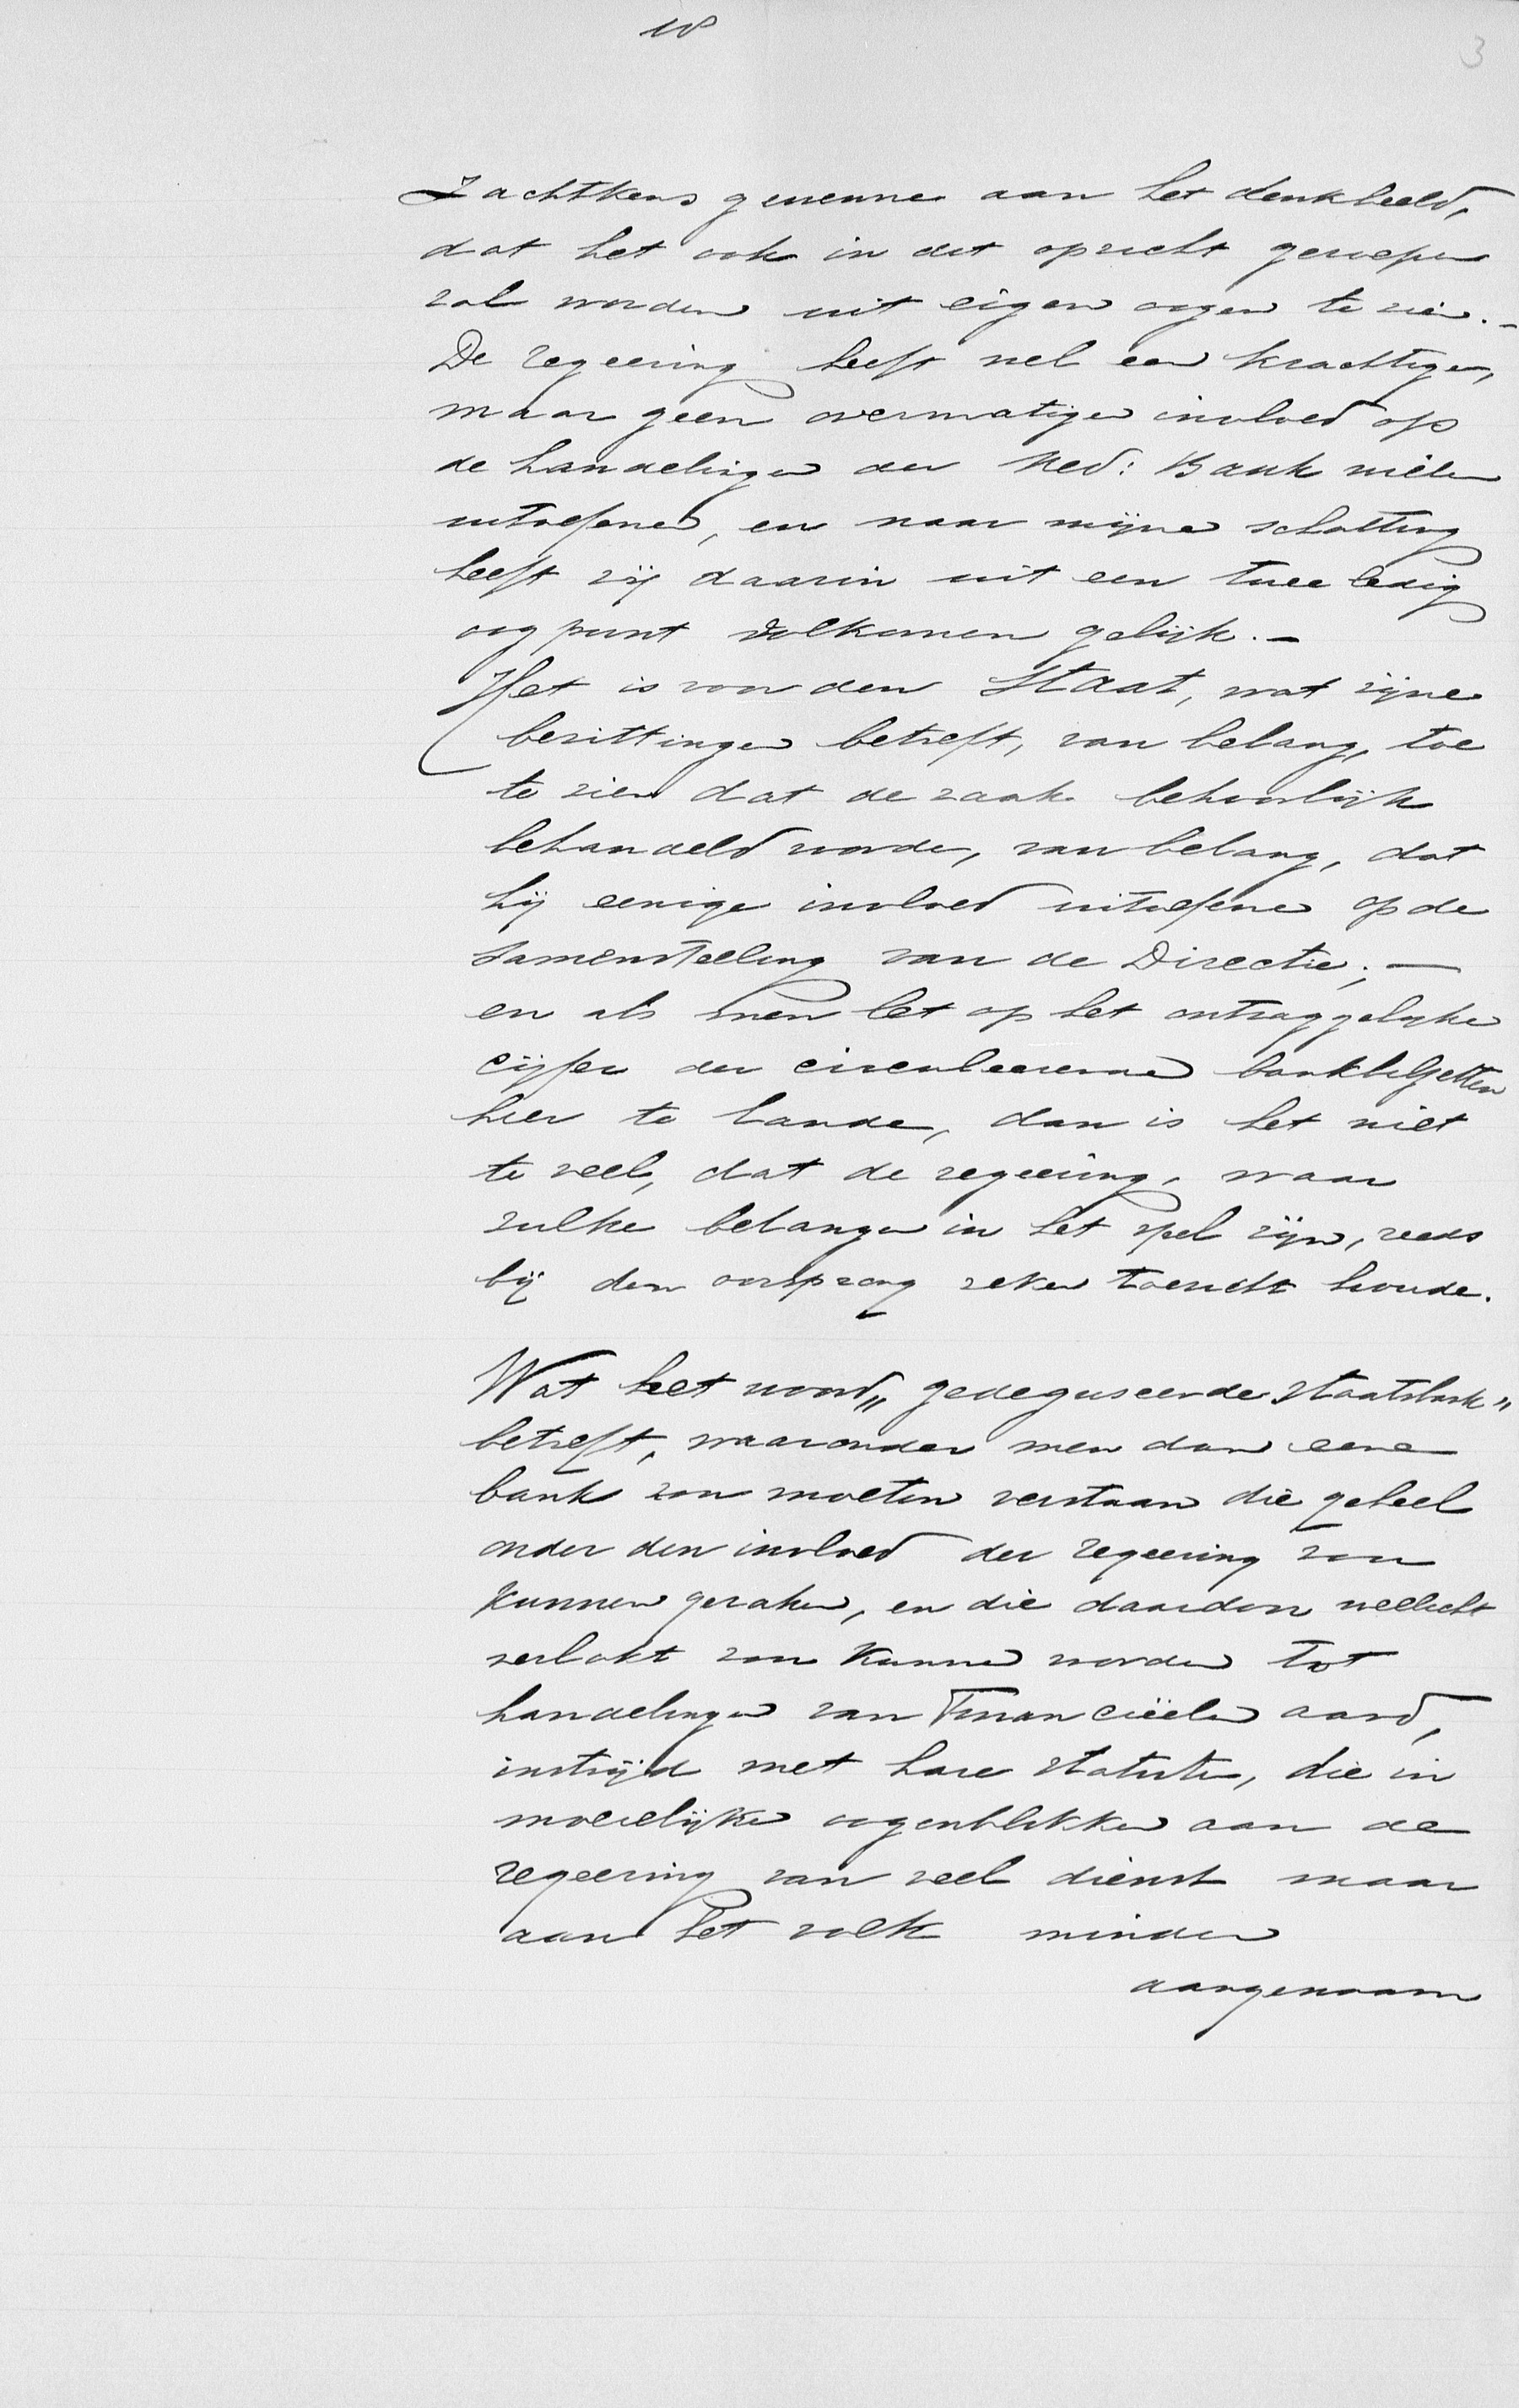 18
3
Zachtkens gewenne aan het denkbeeld,
dat het ook in dit opzicht geroepen
zal worden uit eigen oogen te zien. -
De regeering heeft wel een krachtigen,
maar geen overmatigen invloed op
de handelingen der Ned: Bank willen
uitoefenen, en naar mijne schatting
heeft zij daarin uit een twee ledig
oogpunt volkomen gelijk. -
Het is voor den Staat, wat zijne
bezittingen betreft, van belang, toe
te zien dat de zaak behoorlijk
behandeld worde, van belang, dat
hij eenige invloed uitoefene op de
samenstelling van de Directie; -
en als men let op het ontzaggelijke
cijfer der circuleerende bankbiljetten
hier te lande, dan is het niet
te veel, dat de regeering, waar
zulke belangen in het spel zijn, reeds
bij den oorsprong zeker toezicht houde.
Wat het woord „gedeguiseerde staatsbank"
betreft, waaronder men dan eene
bank zou moeten verstaan die geheel
onder den invloed der regeering zou
kunnen geraken, en die daardoor wellicht
verlokt zou kunnen worden tot
handelingen van Financiëelen aard,
instrijd met hare statuten, die in
moeielijke oogenblikken aan de
regeering van veel dienst maar
aan het volk minder
aangenaam